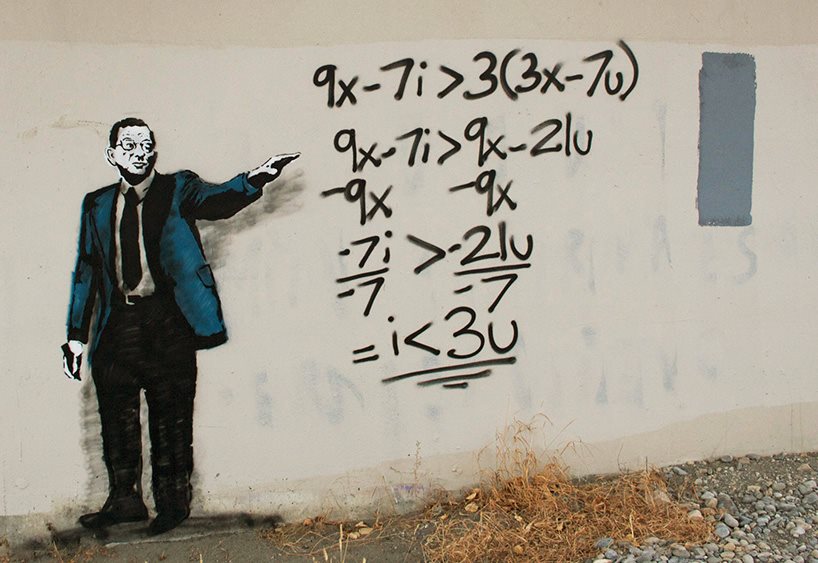 9x-7i>3(3x-7u)
9x-7i>9x-21u
-9x -9x
-7i > -21u
-7 -7
= i<3u